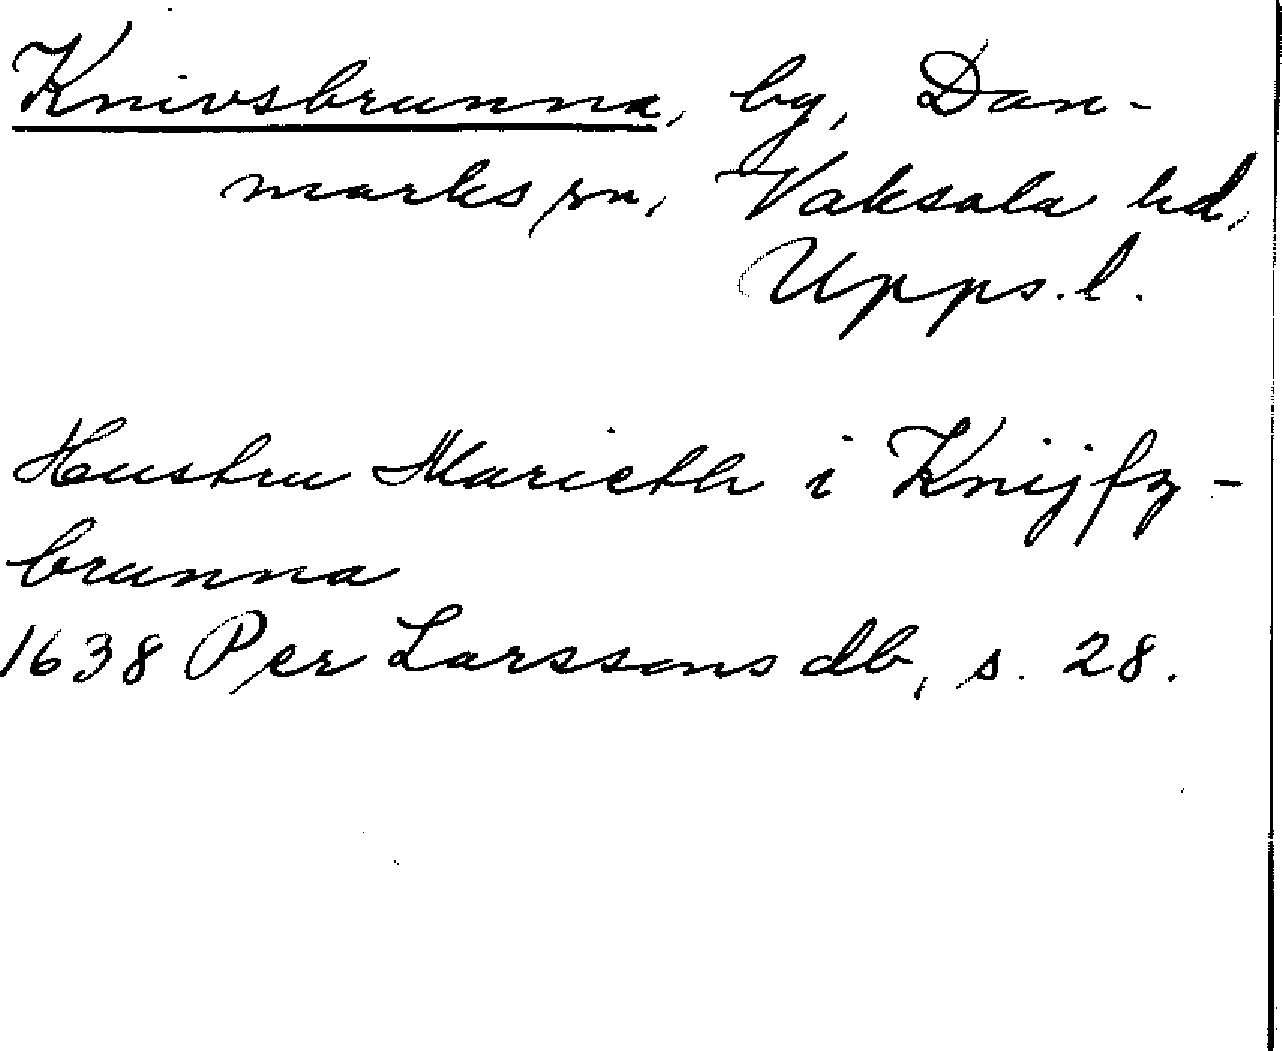 Knivsbrunna, by, Dan-
marks sn, Vaksala hd,
Upps. l.
Hustru Marieth i Knijfz-
brunna
1638 Per Larssons db, s. 28.